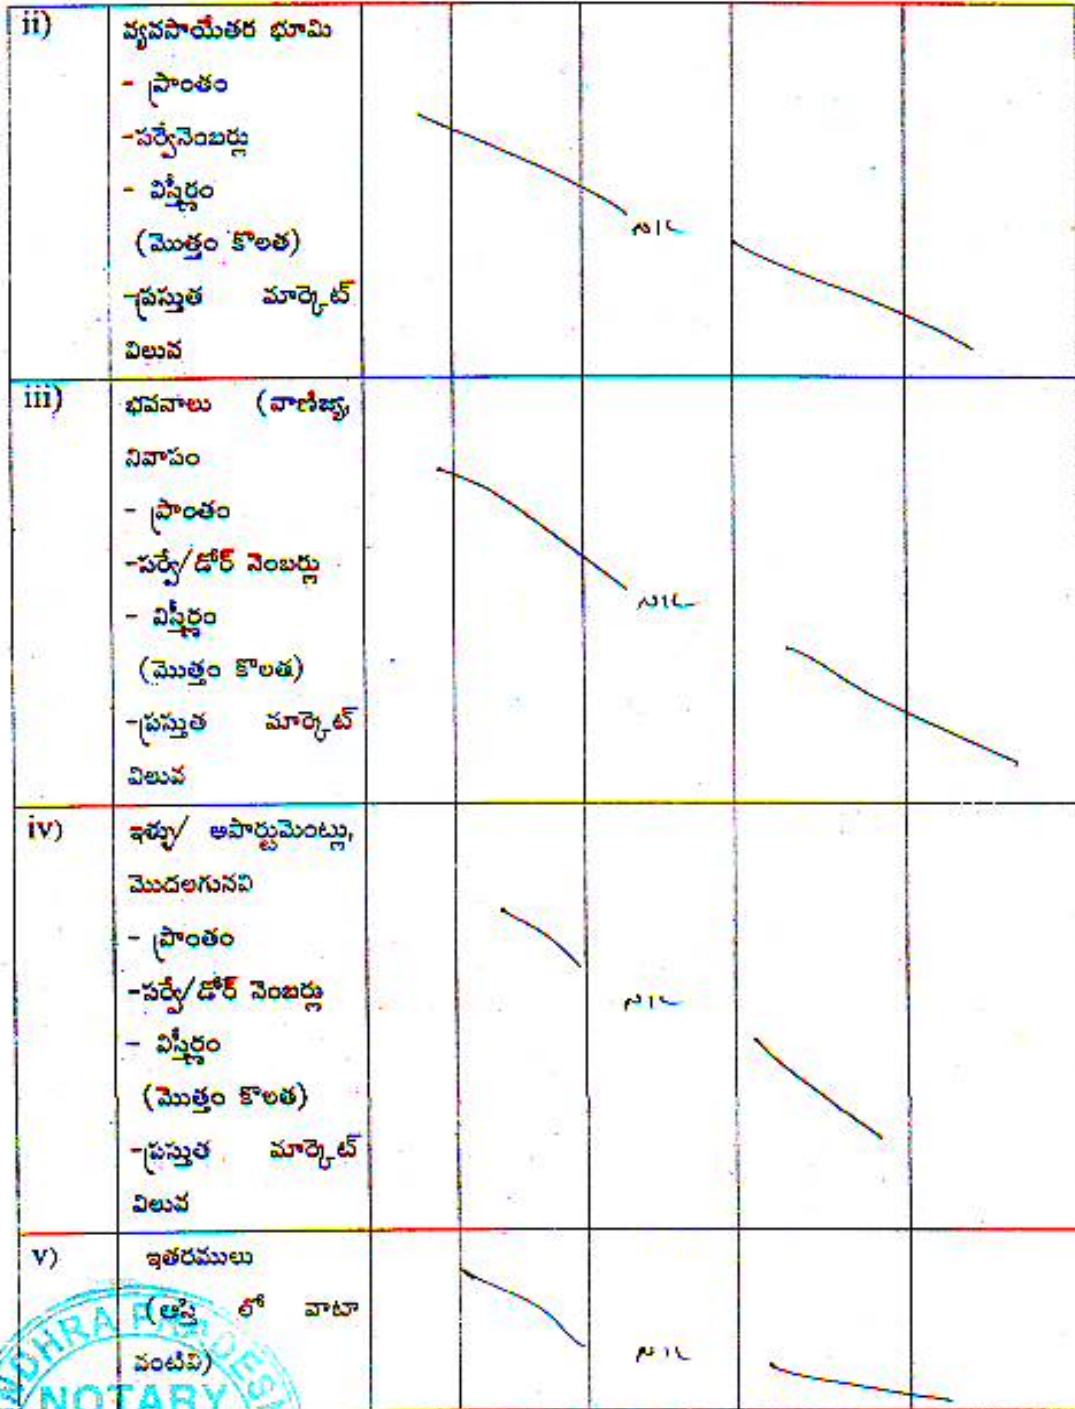 ii) వ్యవసాయేతర భూమి
- ప్రాంతం
-సర్వేనెంబర్లు
- విస్తీర్ణం
(మొత్తం కొలత)
-ప్రస్తుత మార్కెట్
విలువ
NIL
iii) భవనాలు (వాణిజ్య,
నివాసం
- ప్రాంతం
-సర్వే/డోర్ నెంబర్లు
- విస్తీర్ణం
(మొత్తం కొలత)
-ప్రస్తుత మార్కెట్
విలువ
NIL
iv) ఇళ్ళు/ అపార్టుమెంట్లు,
మొదలగునవి
- ప్రాంతం
-సర్వే/డోర్ నెంబర్లు
- విస్తీర్ణం
(మొత్తం కొలత)
-ప్రస్తుత మార్కెట్
విలువ
NIL
v) ఇతరములు
(ఆస్తి లో వాటా
వంటివి)
NIL
ANDHRA PARDESH
NOTARY